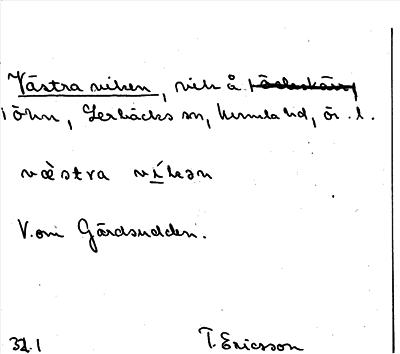 Västra viken, vik å
i öhn, Lerbäcks sn, Kumla hd, ör. l.
væ̀stra víkən
V. om Gårdsudden.
32.1 T. Ericsson